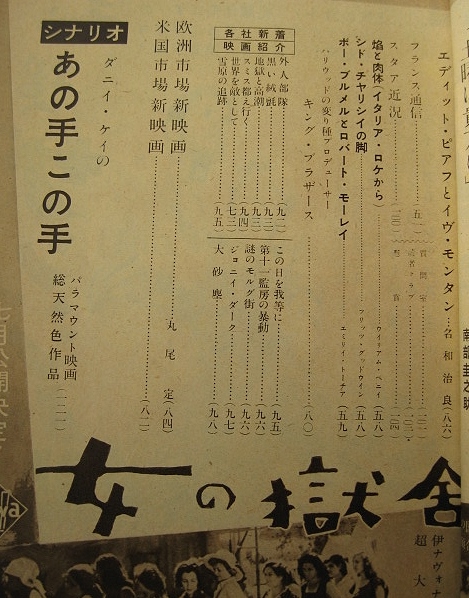 エディット・ピアフとイヴ・モンタン……名和治良(八六)
フランス通信……(五一)
スタア近況……(三二)
質問室
読者クラブ
焰と肉体(イタリア・ロケから)……ウイリアム・ベニイ(五八)
シド・チャリシイの脚……フリッツ・グッドウイン(五八)
ボー・ブルメルとロバート・モーレイ……エミリイ・トーチア(五九)
ハリウッドの変り種プロデューサー
キング・ブラザース……(八〇)
各社新着
映画紹介
外人部隊……(九二)
黒い絨氈……(九三)
地獄と高潮……(九三)
スミス都へ行く……(九四)
世界を敵として……(七三)
雪原の追跡……(九五)
この日を我等に……(九五)
第十一監房の暴動……(九六)
謎のモルグ街……(九六)
ジョニイ・ダーク……(九七)
大砂塵……(九八)
欧洲市場新映画……丸尾定(八四)
米国市場新映画……(八二)
シナリオ
ダニイ・ケイの
あの手この手
パラマウント映画
総天然色作品(一一一)
女の獄舎
伊ナヴォナ
超大